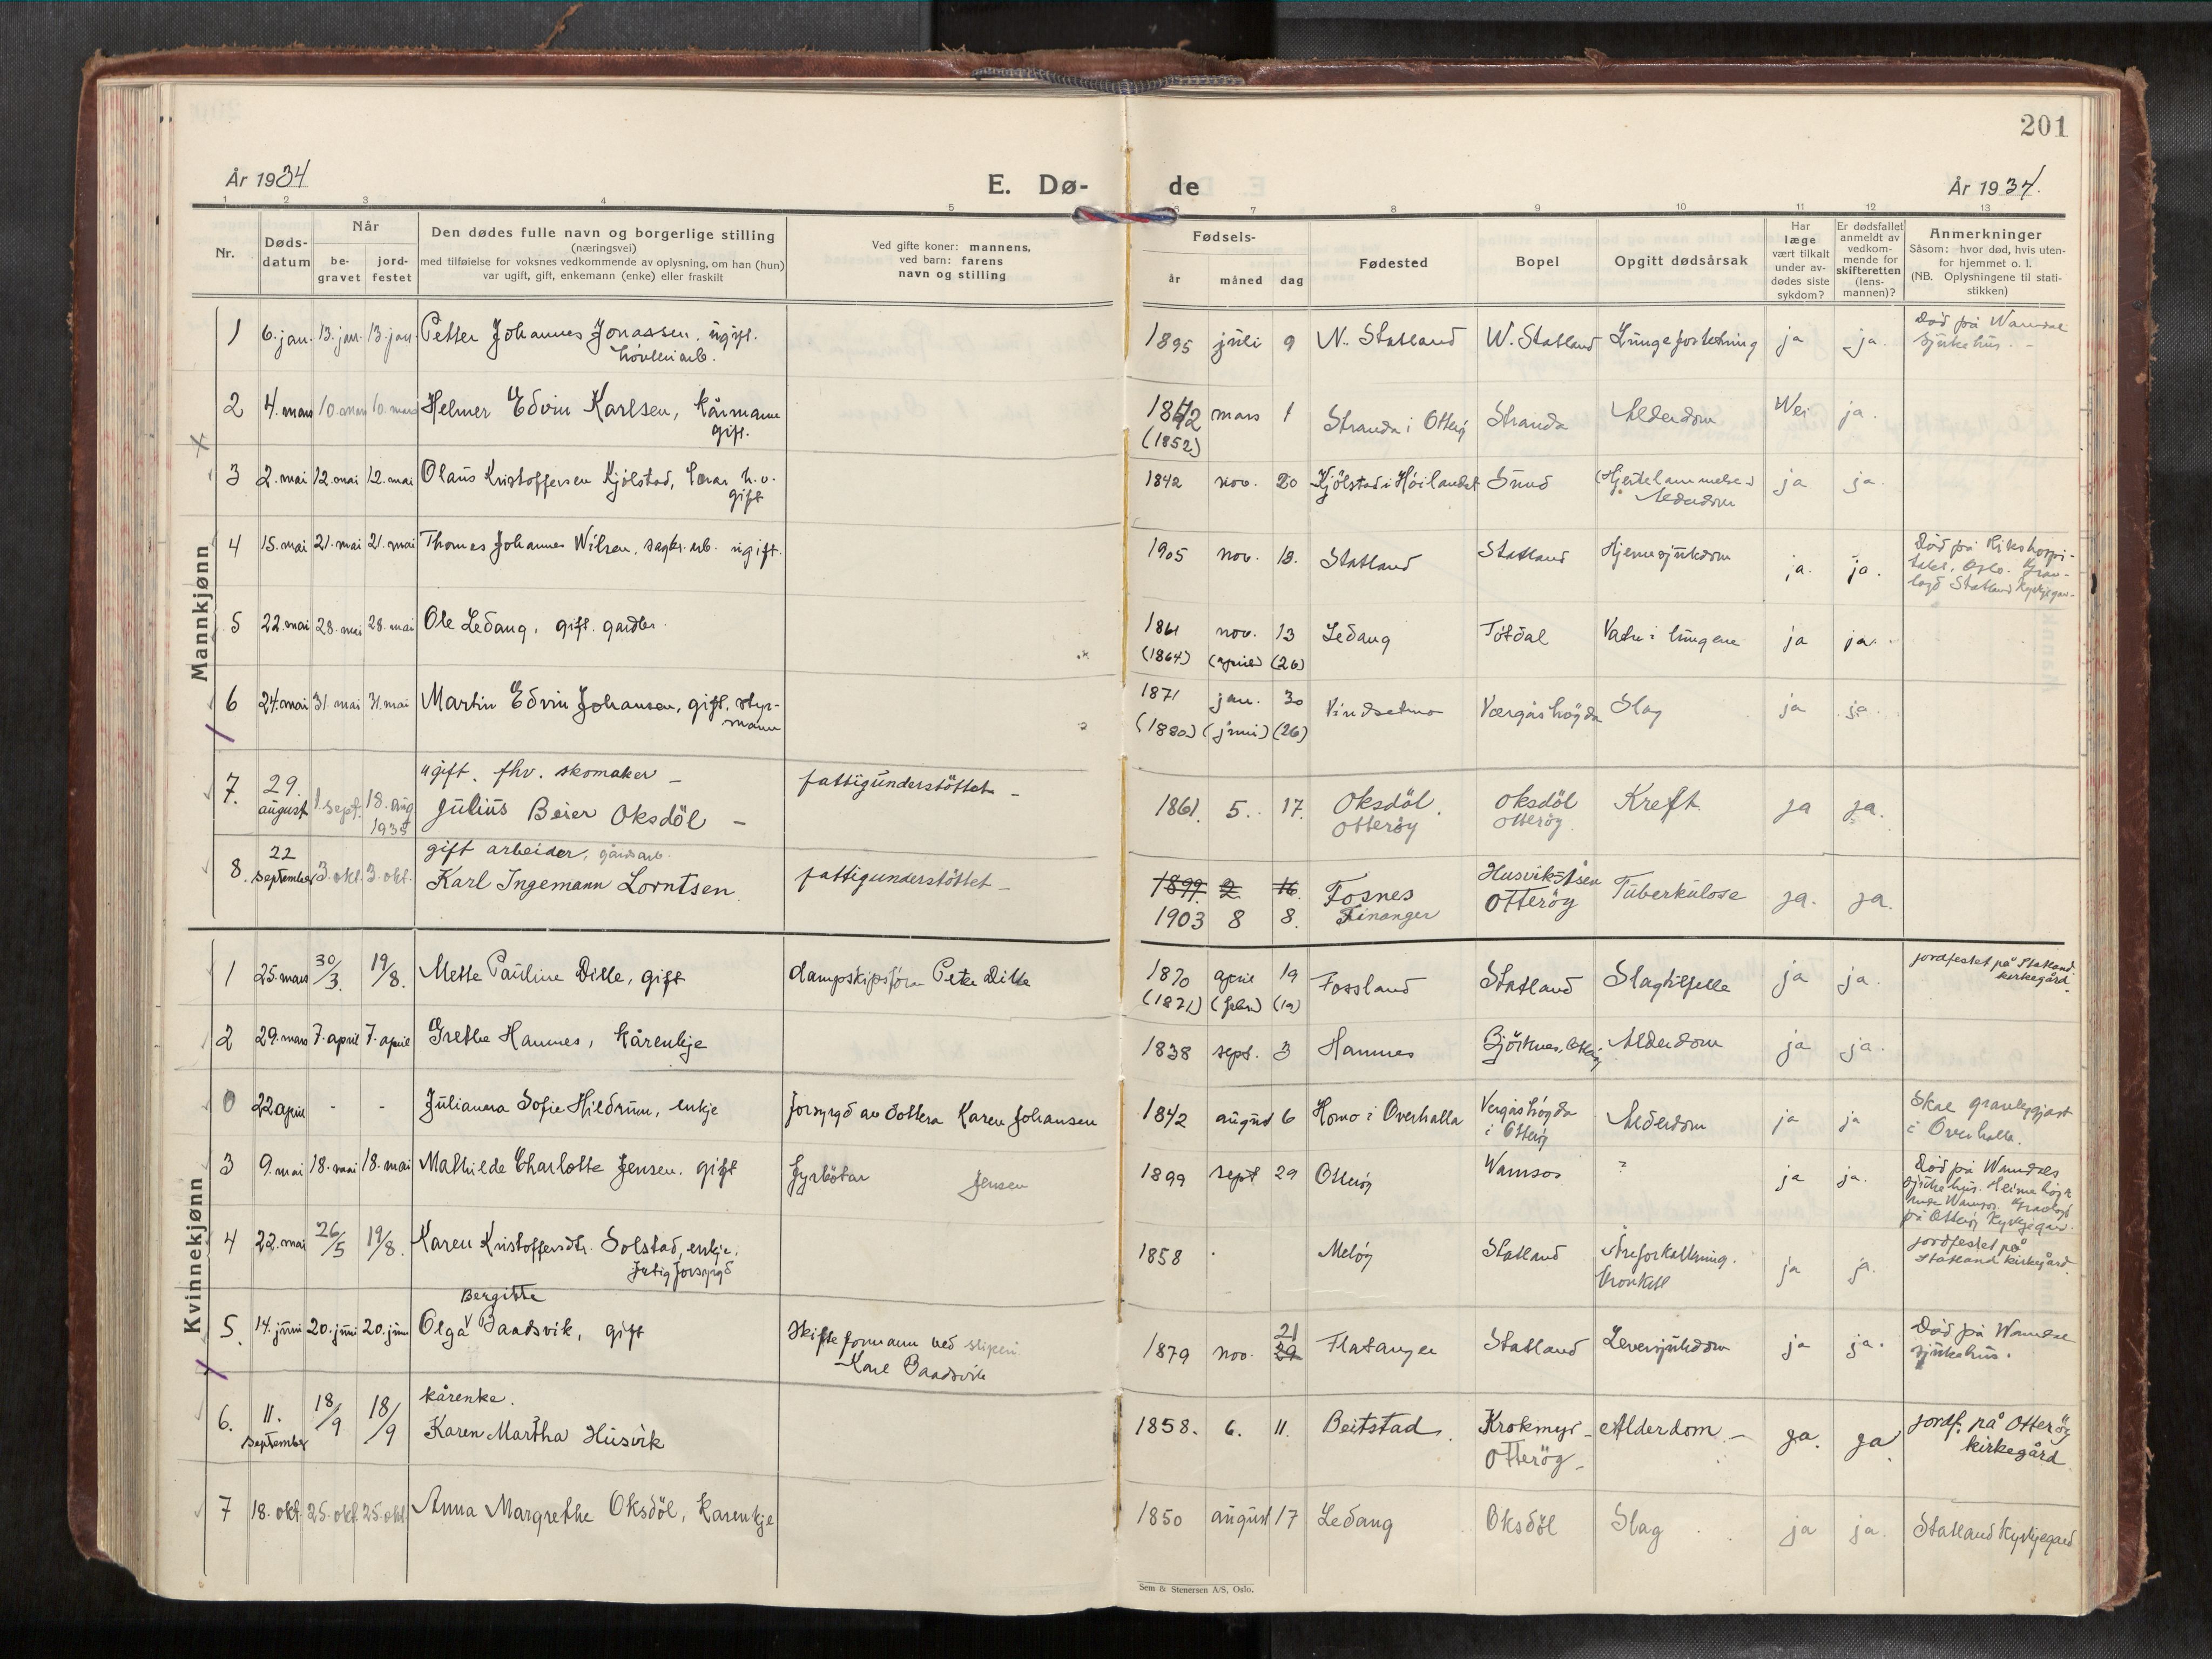 201
År 1934
E. Dø-
de
År 1934.
1 2 3 4 5 6 7 8 9 10 11 12 13
Nr.
Døds-
datum
Når
be-
gravet
jord-
festet
Den dødes fulle navn og borgerlige stilling
(næringsvei)
med tilføielse for voksnes vedkommende av oplysning, om han (hun)
var ugift, gift, enkemann (enke) eller fraskilt
Ved gifte koner: mannens,
ved barn: farens
navn og stilling
Fødsels-
år
måned
dag
Fødested
Bopel
Opgitt dødsårsak
Har
læge
vært tilkalt
under av-
dødes siste
sykdom?
Er dødsfallet
anmeldt av
vedkom-
mende for
skifteretten
(lens-
mannen)?
Anmerkninger
Såsom: hvor død, hvis uten-
for hjemmet o. l.
(NB. Oplysningene til stati-
stikken)
Mannkjønn
1 6. jan. 13. jan. 13. jan. Petter Johannes Jonassen. ugift.
høvleriarb.
1895 juli 9 N. Statland N. Statland Lungefortetning ja ja.
Død på Namdal
sjukehus. -
2 4. mars 10. mars 10. mars Helmer Edvin Karlsen, kårmann
gift.
1842 mars 1 Stranda i Otterøy Stranda Alderdom Nei ja.
(1852)
3 2. mai 12. mai 12. mai Olaus Kristoffersen Kjølstad, lærar h.v.
gift
1842 nov. 20 Kjølstad i Høilandet Snud (Hjertelammelse)
Alderdom
ja ja.
4 15. mai 21. mai 21. mai Thomas Johannes Nilsen, sagbr. arb. ugift.
1905 nov. 13. Statland Statland Hjernesjukdom ja. ja.
Død på Rikshospi-
talet, Oslo. Grav-
lagd Statland kyrkjegar-
5 22. mai 28. mai 28. mai Ole Ledang, gift. gardbr.
1861 nov. 13 Ledang Tøtdal Vatn i lungene ja ja.
(1864) (april) (26)
6 24. mai 31. mai 31. mai Martin Edvin Johansen, gift, styr-
mann
1871 jan. 30 Vindsetmo Værgåshøyda Slag ja ja.
(1880) (juni) (26)
7. 29.
august 1. sept. 18. aug
1935
ugift. fhv. skomaker -
Julius Beier Oksdöl -
fattigunderstöttet -
1861. 5. 17. Oksdöl.
Otteröy
Oksdöl
Otteröy
Kreft. ja ja.
8. 22
september 3. okt. 3. okt.
gift arbeider, gårdsarb.
Karl Ingemann Lorntsen.
fattigunderstöttet -
1899. 2. 16.
1903 8 8.
Fosnes
Finanger
Husvikåsen
Otteröy
Tuberkulose ja. ja.
Kvinnekjønn
1 25. mars 30/3. 19/8. Mette Pauline Dille, gift dampskipsfører Peter Dille
1870 april 19 Fossland Statland Slagtilfelle ja ja.
(1871) (febr) (19)
jordfestet på Statland
kirkegård.
2 29. mars 7. april 7. april Grethe Hamnes, kårenkje
1838 sept. 3 Hamnes Bjørknes, Otterøy Alderdom ja ja.
0 22 april - - Julianna Sofie Hildrum, enkje forsyrgd av dottera Karen Johansen
1842 august 6 Homo i Overhalla Vergåshøyda
i Otterøy
Alderdom ja ja
Skal gravleggjast
i Overhalla.
3 9. mai 18. mai 18. mai Mathilde Charlotte Jensen. gift fyrbøtar Jensen
1899 sept 29 Otterøy Namsos ? ja ja.
Død på Namdals
sjukehus. Heimehøyr
Namsos. Gravlagd
på Otterøy kyrkjegar.
4 22. mai 26/5 19/8. Karen Kristoffersdtr. Solstad, enkje,
fatig forsyrgd
1858 Meløy Statland Åreforkalkning.
Bronkitt
ja ja.
jordfestet på
Statland kirkegård.
5. 14. juni 20. juni 20. juni Bergitte
Olga Baadsvik, gift
Skifteformann ved sliperi.
Karl Baadsvik
1879 nov. 21
29
Flatanger Statland Leversjukdom ja ja.
Død på Namdal
sjukehus.
6. 11.
september 18/9 18/9
kårenke.
Karen Martha Husvik
1858. 6. 11. Beitstad. Krokmyr -
Otteröy -
Alderdom - ja. ja
jordf. på Otteröy
kirkegård
7 18. okt. 25. okt. 25. okt. Anna Margrethe Oksdöl, kårenkje
1850 august 17 Ledang Oksdöl Slag ja ja. Statland kyrkjegard
Sem & Stenersen A/S, Oslo.